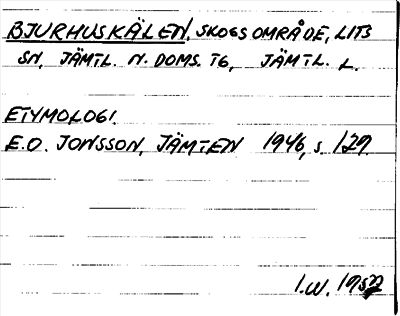 BJURHUSKÄLEN, SKOGSOMRÅDE, LITS
SN, JÄMTL. N. DOMS. TG, JÄMTL. L.
ETYMOLOGI.
E.O. JONSSON, JÄMTEN 1946, s. 129.
I.W. 1952